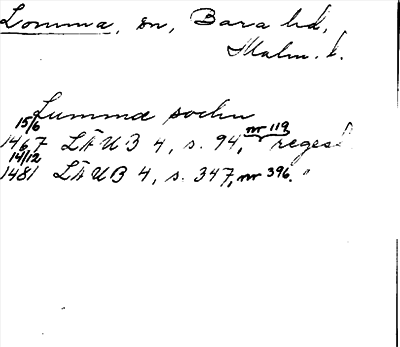 Lomma, sn, Bara hd,
Malm. l.
Lumma sockn
15/6
1467 LÄUB 4, s. 94, nr 119 regest
14/12
1481 LÄUB 4, s. 347, nr 396. "